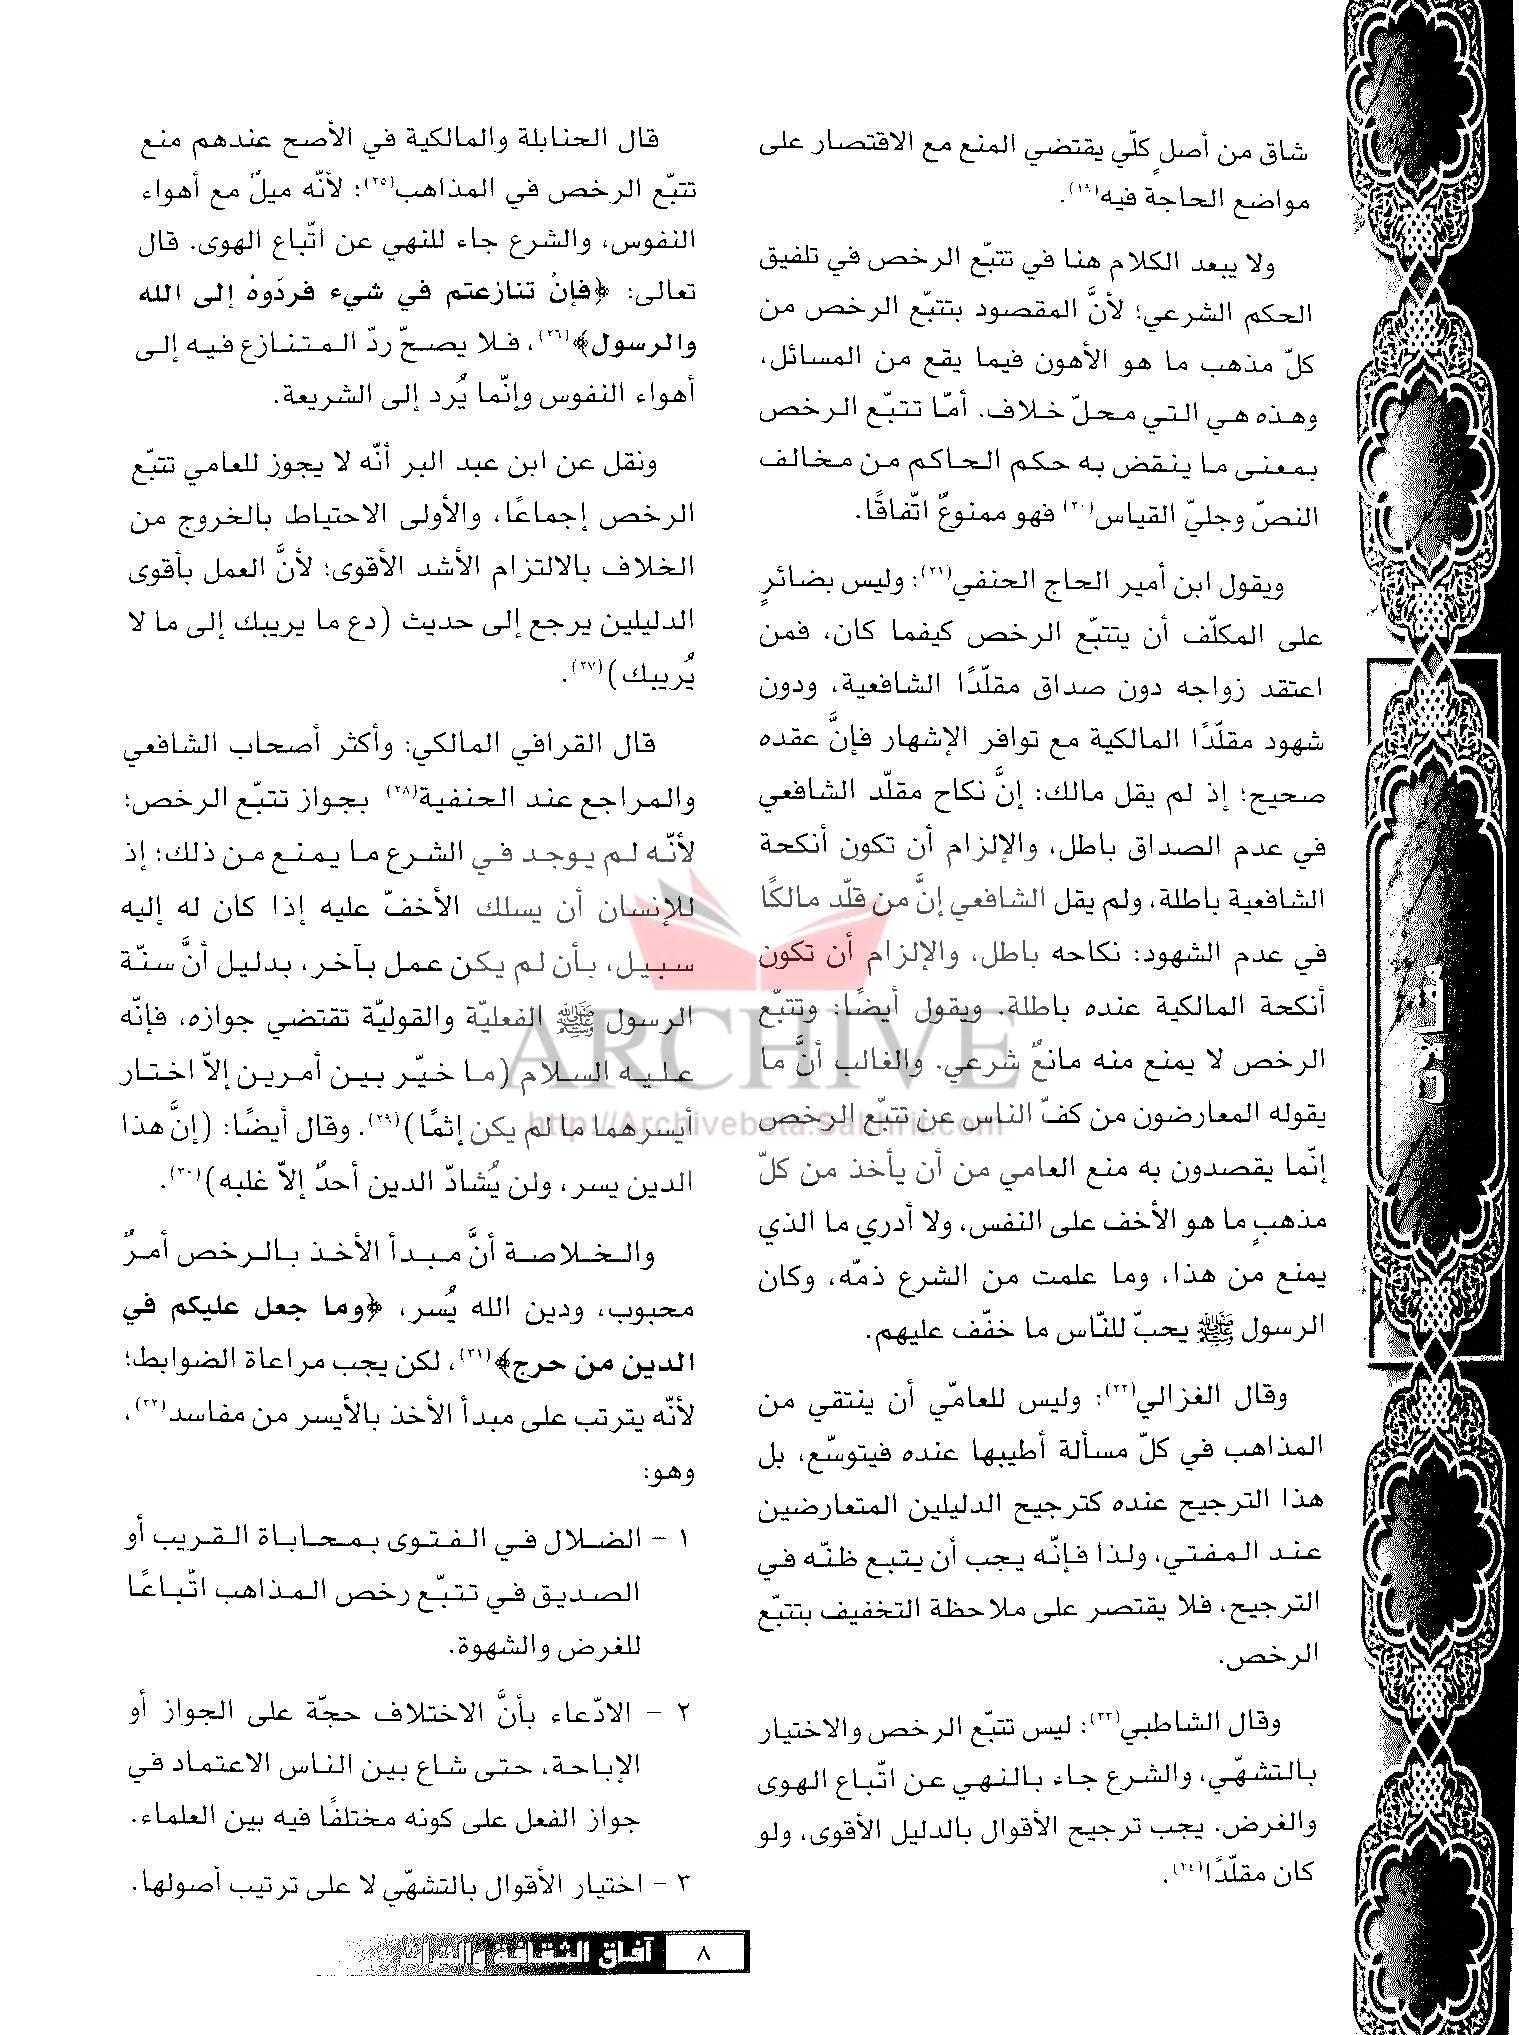 شاق من أصلٍ كلّي يقتضي المنع مع الاقتصار على
مواضع الحاجة فيه(١٩).
ولا يبعد الكلام هنا في تتبّع الرخص في تلفيق
الحكم الشرعي؛ لأنَّ المقصود بتتبّع الرخص من
كلّ مذهب ما هو الأهون فيما يقع من المسائل،
وهذه هي التي محلّ خلاف. أمّا تتبّع الرخص
بمعنى ما ينقض به حكم الحاكم من مخالف
النصّ وجليّ القياس(٢٠) فهو ممنوعٌ اتّفاقًا.
ويقول ابن أمير الحاج الحنفي(٢١): وليس بضائرٍ
على المكلّف أن يتتبّع الرخص كيفما كان، فمن
اعتقد زواجه دون صداق مقلّدًا الشافعية، ودون
شهود مقلّدًا المالكية مع توافر الإشهار فإنَّ عقده
صحيح؛ إذ لم يقل مالك: إنَّ نكاح مقلّد الشافعي
في عدم الصداق باطل، والإلزام أن تكون أنكحة
الشافعية باطلة، ولم يقل الشافعي إنَّ من قلّد مالكًا
في عدم الشهود: نكاحه باطل، والإلزام أن تكون
أنكحة المالكية عنده باطلة. ويقول أيضًا: وتتبّع
الرخص لا يمنع منه مانعٌ شرعي. والغالب أنَّ ما
يقوله المعارضون من كفّ الناس عن تتبّع الرخص
إنّما يقصدون به منع العامي من أن يأخذ من كلّ
مذهبٍ ما هو الأخف على النفس، ولا أدري ما الذي
يمنع من هذا، وما علمت من الشرع ذمّه، وكان
الرسول ﷺ يحبّ للنّاس ما خفّف عليهم.
وقال الغزالي(٢٢): وليس للعامّي أن ينتقي من
المذاهب في كلّ مسألة أطيبها عنده فيتوسّع، بل
هذا الترجيح عنده كترجيح الدليلين المتعارضين
عند المفتي، ولذا فإنّه يجب أن يتبع ظنّه في
الترجيح، فلا يقتصر على ملاحظة التخفيف بتتبّع
الرخص.
وقال الشاطبي(٢٣): ليس تتبّع الرخص والاختيار
بالتشهّي، والشرع جاء بالنهي عن اتّباع الهوى
والغرض. يجب ترجيح الأقوال بالدليل الأقوى، ولو
كان مقلّدًا(٢٤).
قال الحنابلة والمالكية في الأصح عندهم منع
تتبّع الرخص في المذاهب(٢٥)؛ لأنّه ميلٌ مع أهواء
النفوس، والشرع جاء للنهي عن اتّباع الهوى. قال
تعالى: ﴿فإنْ تنازعتم في شيء فردّوهُ إلى الله
والرسول﴾(٢٦)، فلا يصحّ ردّ المتنازع فيه إلى
أهواء النفوس وإنّما يُرد إلى الشريعة.
ونقل عن ابن عبد البر أنّه لا يجوز للعامي تتبّع
الرخص إجماعًا، والأولى الاحتياط بالخروج من
الخلاف بالالتزام الأشد الأقوى؛ لأنَّ العمل بأقوى
الدليلين يرجع إلى حديث (دع ما يريبك إلى ما لا
يُريبك)(٢٧).
قال القرافي المالكي: وأكثر أصحاب الشافعي
والمراجع عند الحنفية(٢٨) بجواز تتبّع الرخص؛
لأنّه لم يوجد في الشرع ما يمنع من ذلك؛ إذ
للإنسان أن يسلك الأخفّ عليه إذا كان له إليه
سبيل، بأن لم يكن عمل بآخر، بدليل أنَّ سنّة
الرسول ﷺ الفعليّة والقوليّة تقتضي جوازه، فإنّه
عليه السلام (ما خيّر بين أمرين إلاّ اختار
أيسرهما ما لم يكن إثمًا)(٢٩). وقال أيضًا: (إنَّ هذا
الدين يسر، ولن يُشادّ الدين أحدٌ إلاّ غلبه)(٣٠).
والخلاصة أنَّ مبدأ الأخذ بالرخص أمرٌ
محبوب، ودين الله يُسر، ﴿وما جعل عليكم في
الدين من حرج﴾(٣١)، لكن يجب مراعاة الضوابط؛
لأنّه يترتب على مبدأ الأخذ بالأيسر من مفاسد(٣٢)،
وهو:
١ - الضلال في الفتوى بمحاباة القريب أو
الصديق في تتبّع رخص المذاهب اتّباعًا
للغرض والشهوة.
٢ - الادّعاء بأنَّ الاختلاف حجّة على الجواز أو
الإباحة، حتى شاع بين الناس الاعتماد في
جواز الفعل على كونه مختلفًا فيه بين العلماء.
٣ - اختيار الأقوال بالتشهّي لا على ترتيب أصولها.
مقالات
ARCHIVE
http://Archivebeta.Sakhrit.com
٨
آفاق الثقافة والتراث